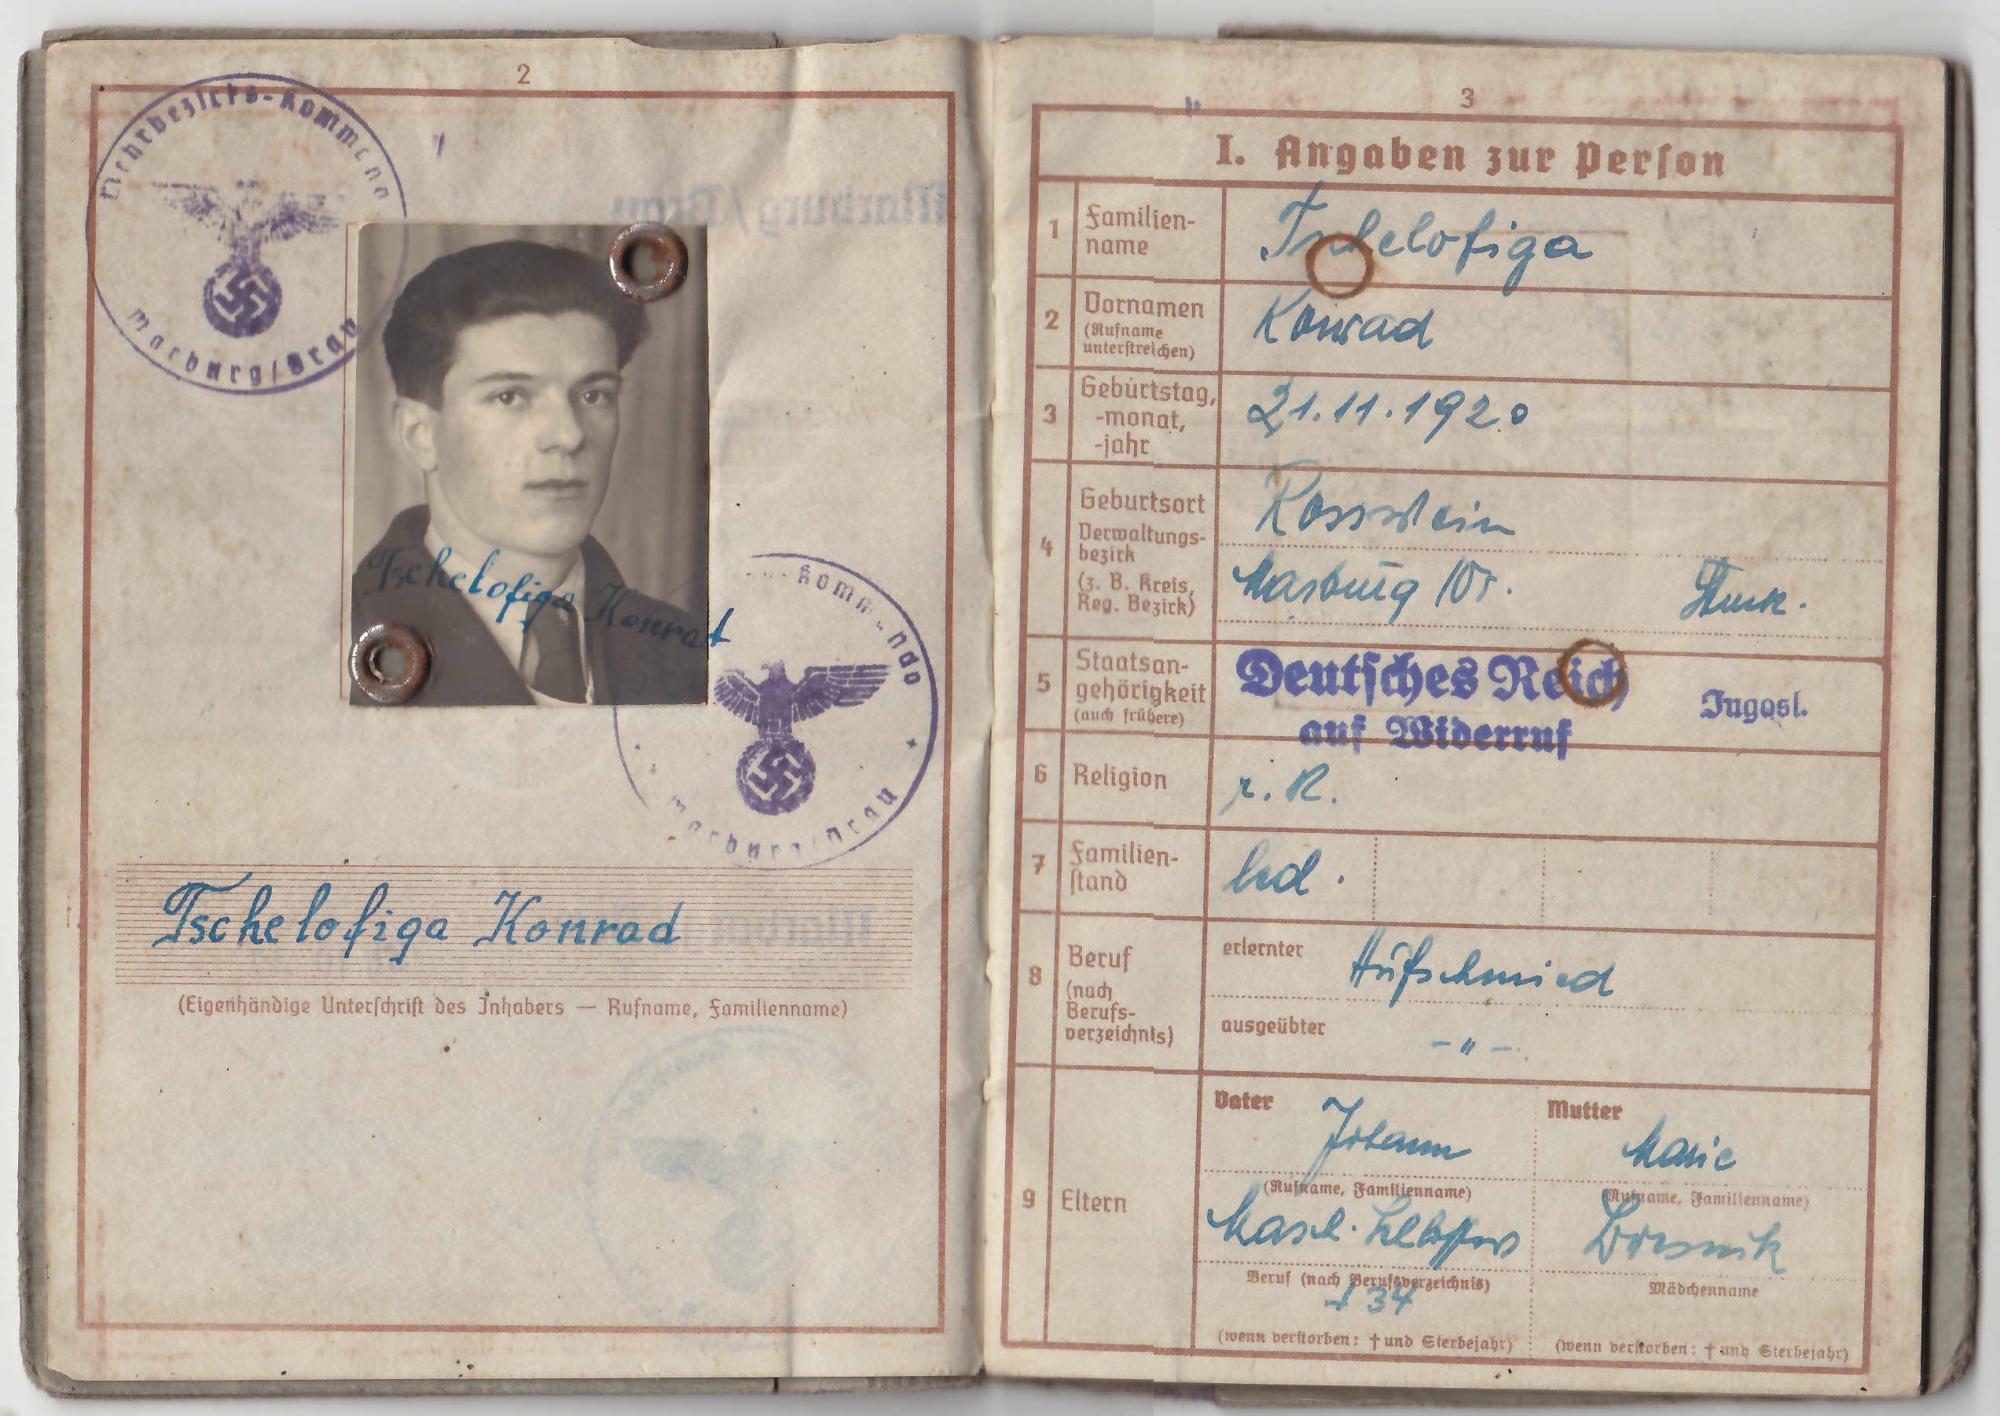 2
Wehrbezirks-Kommando
Marburg/Drau
Tschelofiga Konrad
Kommando
Marburg/Drau
Tschelofiga Konrad
(Eigenhändige Unterschrift des Inhabers — Rufname, Familienname)
3
I. Angaben zur Person
1 Familien-
name
Tschelofiga
2 Vornamen
(Rufname
unterstreichen)
Konrad
3 Geburtstag,
-monat,
-jahr
21.11.1920
4 Geburtsort
Verwaltungs-
bezirk
(z. B. Kreis,
Reg. Bezirk)
Rosswein
Marburg /Dr.
5 Staatsan-
gehörigkeit
(auch frühere)
Deutsches Reich
auf Widerruf
Jugosl.
6 Religion
r. K.
7 Familien-
stand
led.
8 Beruf
(nach
Berufs-
verzeichnis)
erlernter Hufschmied
ausgeübter -"-
9 Eltern
Vater Johann
(Rufname, Familienname)
Masch. Schlosser
Beruf (nach Berufsverzeichnis)
+ 34
(wenn verstorben: † und Sterbejahr)
Mutter Marie
(Rufname, Familienname)
Mädchenname
(wenn verstorben: † und Sterbejahr)